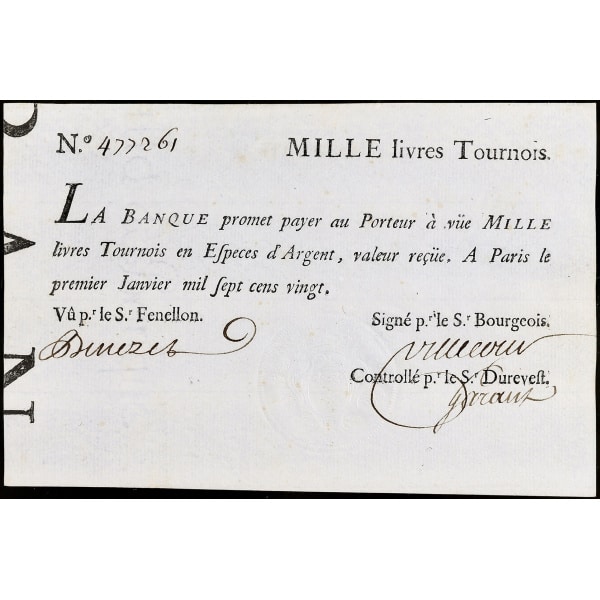 N.º 477261 MILLE livres Tournois.
LA BANQUE promet payer au Porteur à vüe MILLE
livres Tournois en Eſpeces d'Argent, valeur reçüe. A Paris le
premier Janvier mil ſept cens vingt.
Vû p.r le S.r Fenellon. Signé p.r le S.r Bourgeois.
Controllé p.r le S.r Dureveſt.